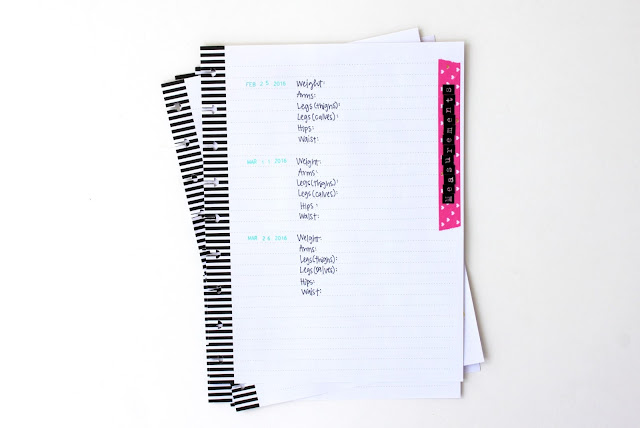 FEB 25 2016 Weight:
Arms:
Legs (thighs):
Legs (calves):
Hips:
Waist:
MAR 11 2016 Weight:
Arms:
Legs (thighs):
Legs (calves):
Hips:
Waist:
MAR 26 2016 Weight:
Arms:
Legs (thighs):
Legs (calves):
Hips:
Waist:
Measurements